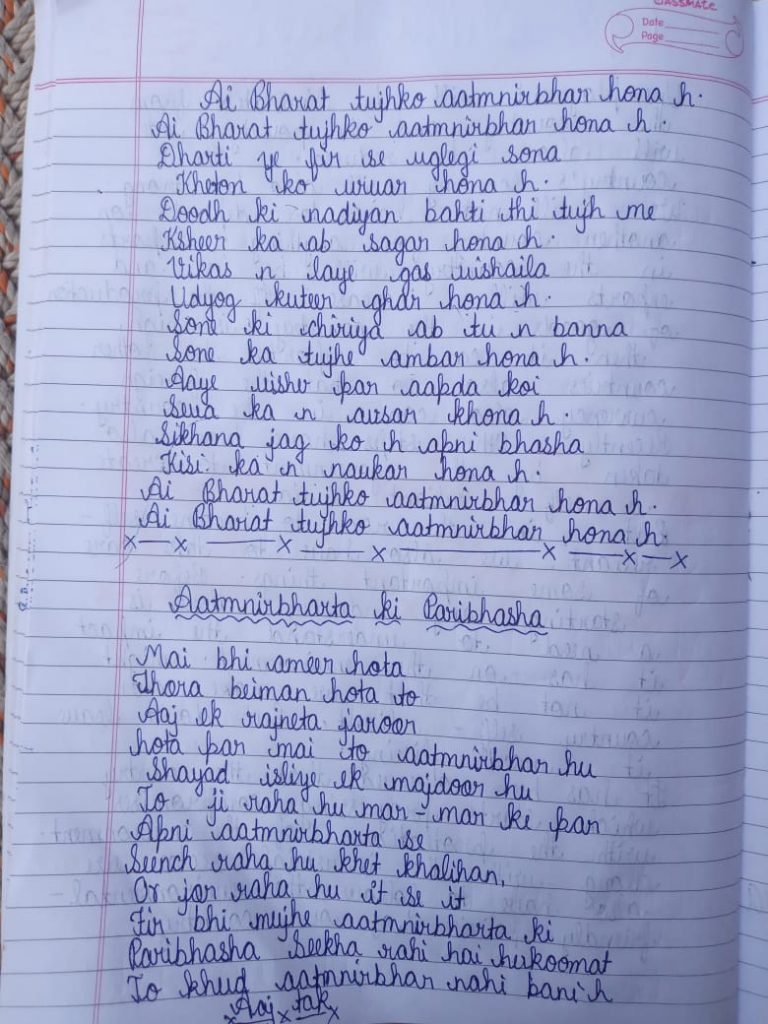 CLASSMATE
Date
Page
Ai Bharat tujhko aatmnirbhar hona h.
Ai Bharat tujhko aatmnirbhar hona h.
Dharti ye fir se uglegi sona
Kheton ko urvar hona h.
Doodh ki nadiyan bahti thi tujh me
Ksheer ka ab sagar hona h.
Vikas n laye gas vishaila
Udyog kuteer ghar hona h.
Sone ki chiriya ab tu n banna
Sone ka tujhe ambar hona h.
Aaye vishv par aapda koi
Seva ka n avsar khona h.
Sikhana jag ko h apni bhasha
Kisi ka n naukar hona h.
Ai Bharat tujhko aatmnirbhar hona h.
Ai Bharat tujhko aatmnirbhar hona h.
Aatmnirbharta ki Paribhasha
Mai bhi ameer hota
Thora beiman hota to
Aaj ek rajneta jaroor
hota par mai to aatmnirbhar hu
Shayad isliye ek majdoor hu
To ji raha hu mar-mar ke par
Apni aatmnirbharta se
Seench raha hu khet khalihan,
Or jor raha hu it se it
Fir bhi mujhe aatmnirbharta ki
Paribhasha seekha rahi hai hukoomat
Jo khud aatmnirbhar nahi bani h
Aaj tak